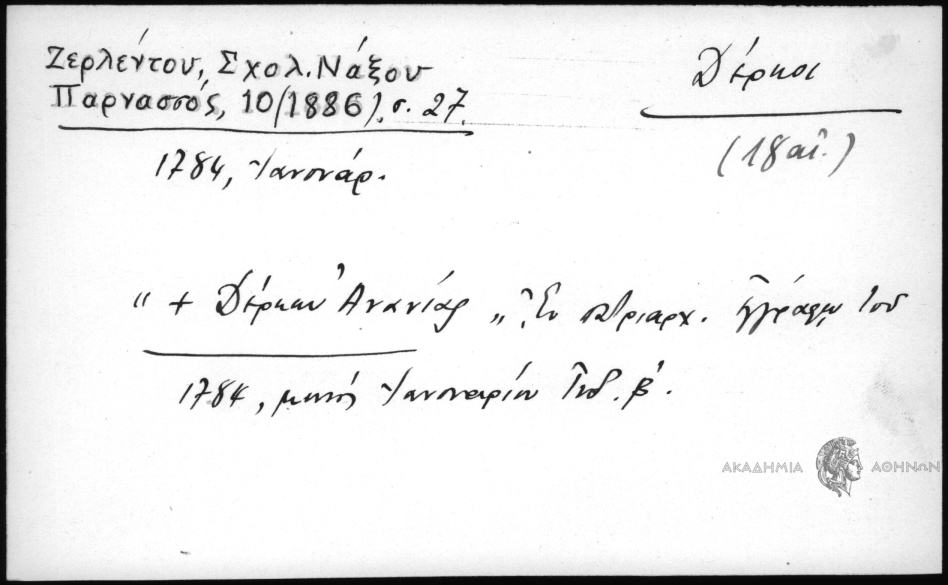 Ζερλέντου, Σχολ. Νάξου
Παρνασσός, 10 (1886), σ. 27.
Δέρκοι
(18 αἰ.)
1784, Ἰανουάρ.
" + Δέρκων Ἀνανίας " Ἐν πατριαρχ. ἐγγράφῳ τοῦ
1784, μηνὸς Ἰανουαρίου Ἰνδ. β'.
ΑΚΑΔΗΜΙΑ ΑΘΗΝΩΝ